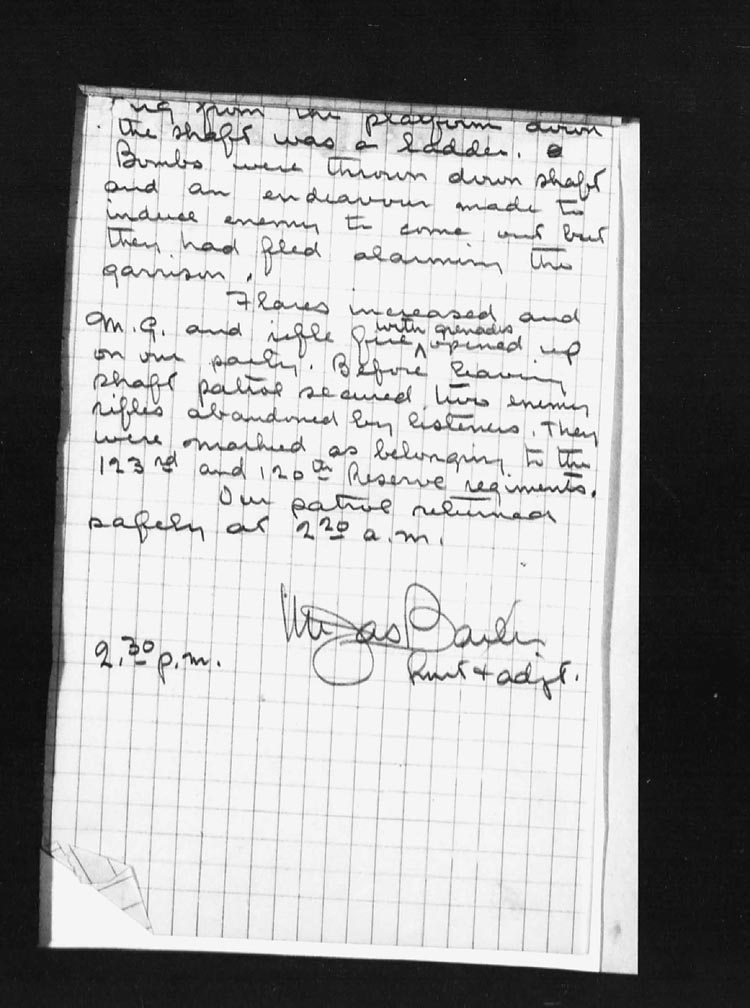 ing from the platform down
the shaft was a ladder.
Bombs were thrown down shaft
and an endeavour made to
induce enemy to come out but
they had fled alarming the
garrison.
Flares increased and
M.G. and rifle fire with grenades opened up
on our party. Before leaving
shaft patrol secured two enemy
rifles abandoned by listeners. They
were marked as belonging to the
123rd and 120th Reserve regiments.
Our patrol returned
safely at 2.20 a.m.
2.30 p.m.
Lieut + adjt.